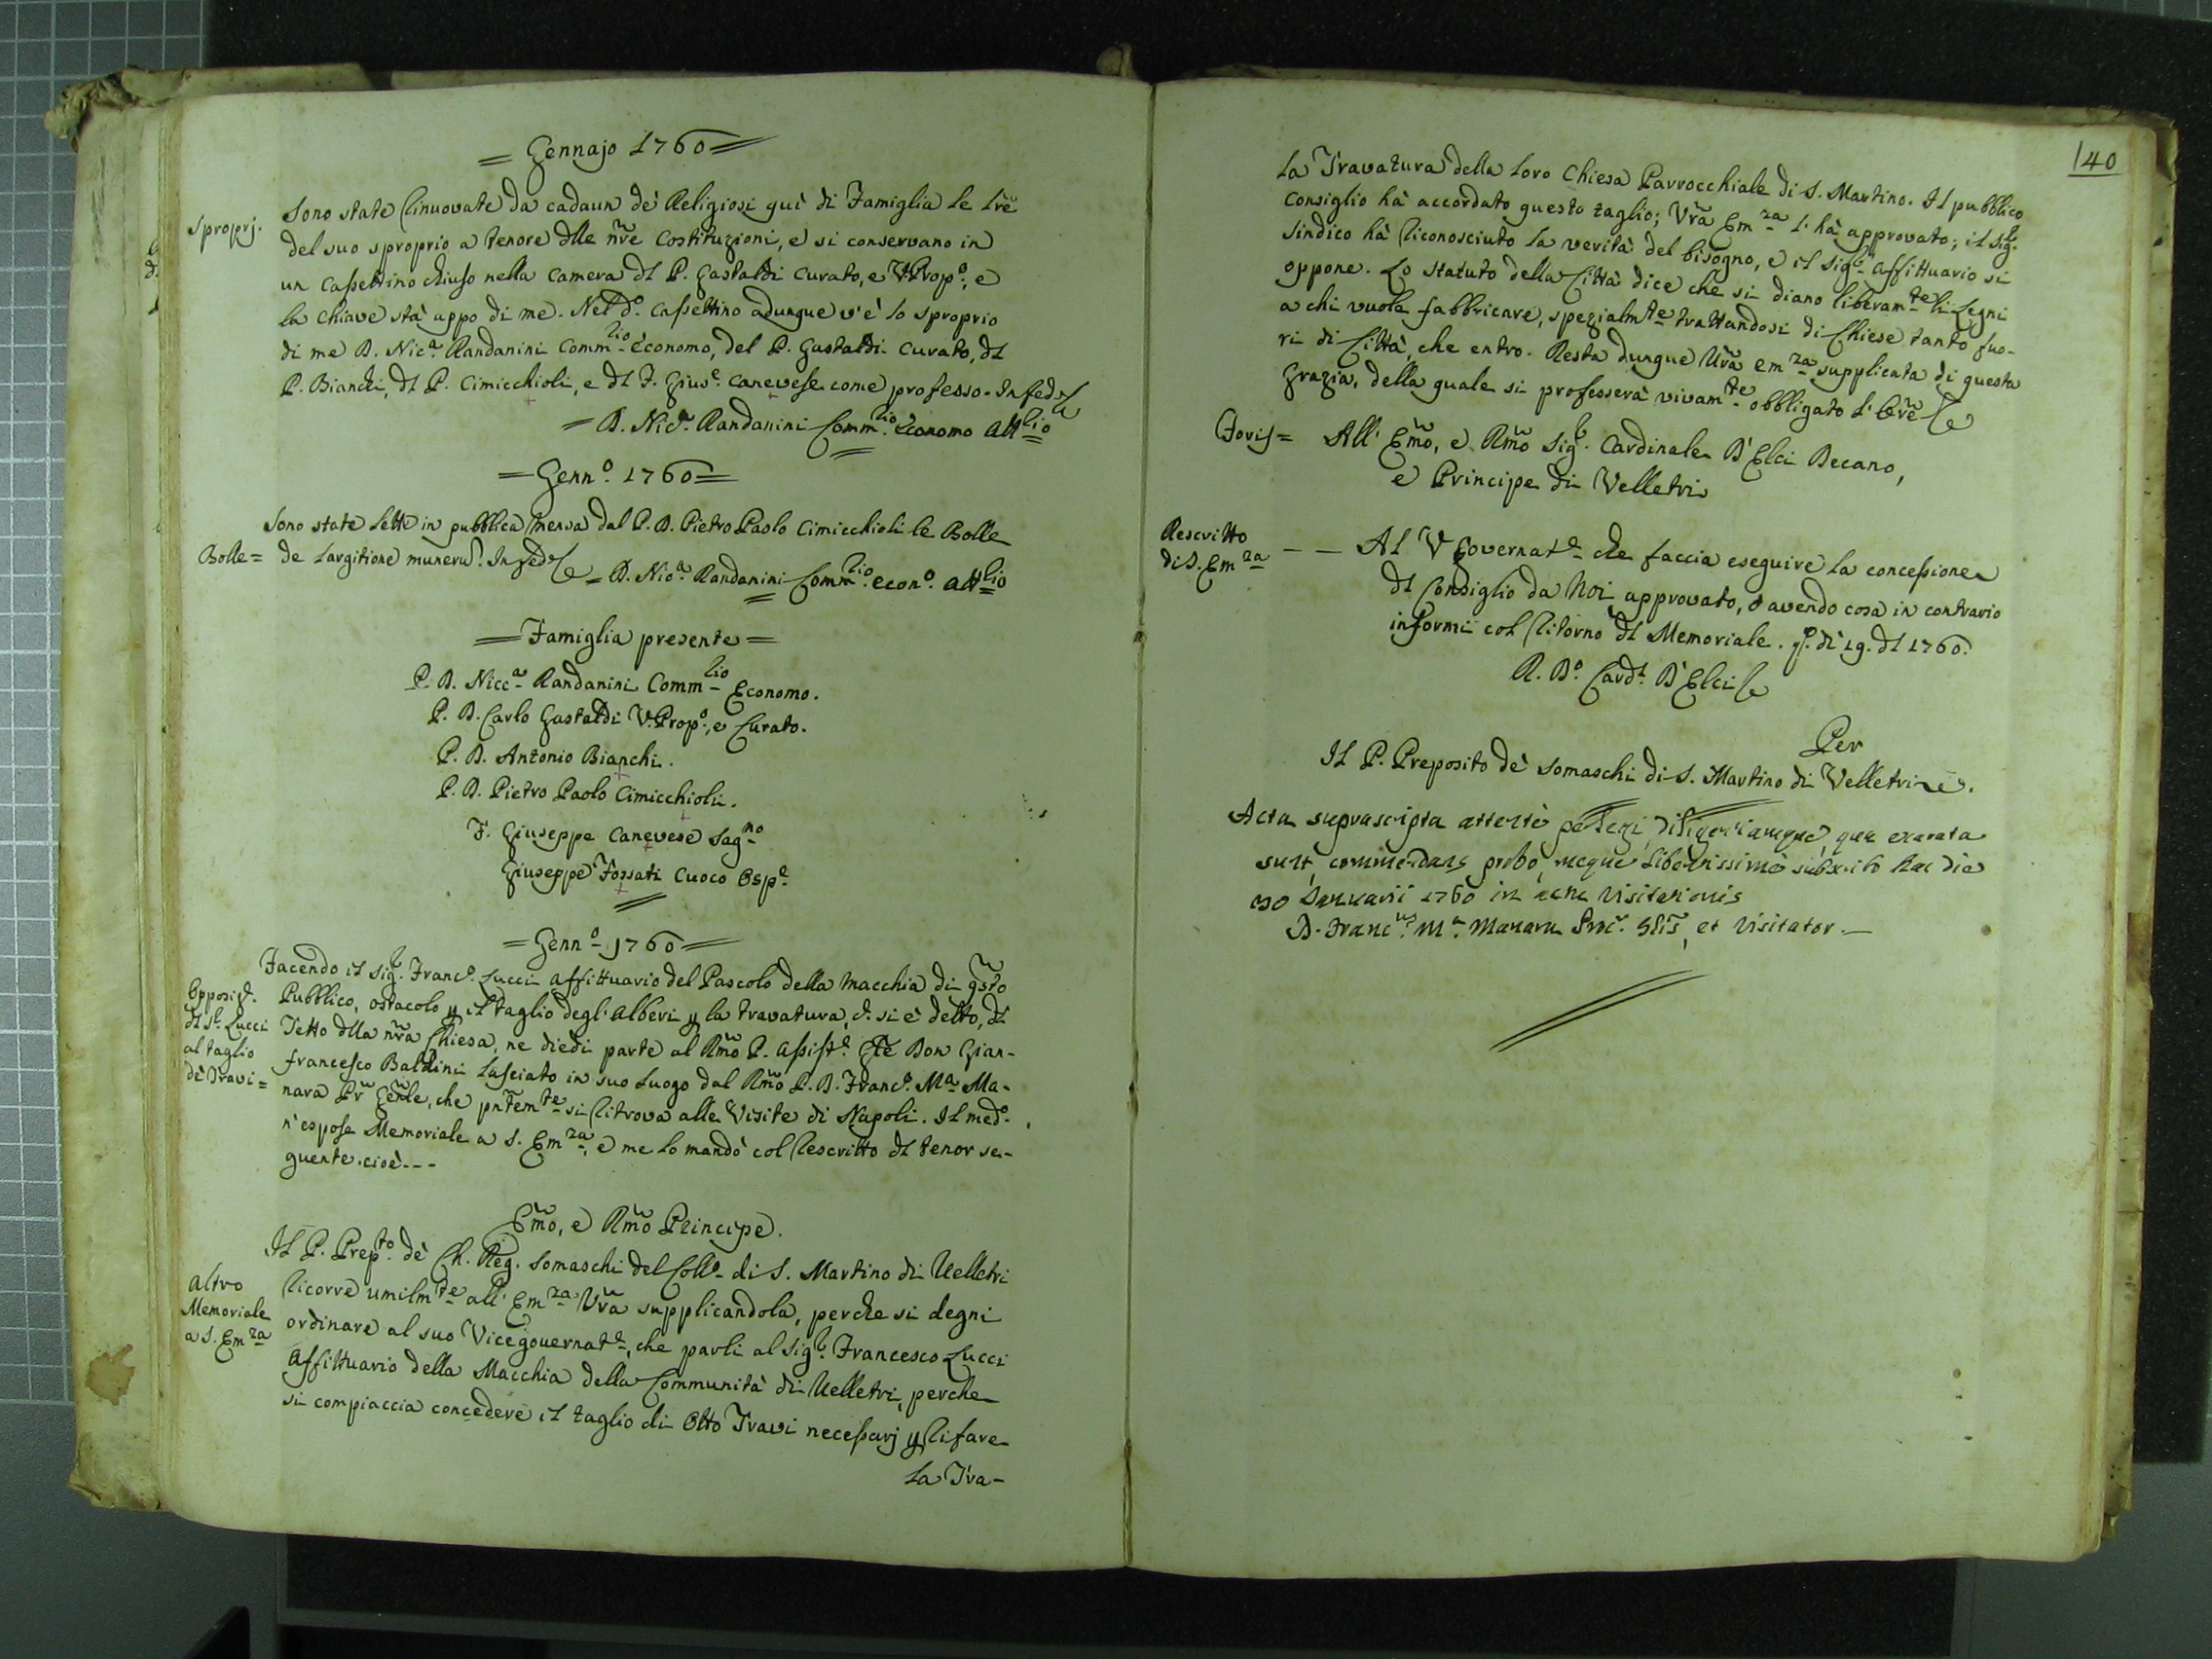 = Gennajo 1760 =
Sproprj.
Sono state rinuovate da cadaun de' Religiosi quì di Famiglia le lre
del suo sproprio a tenore dlle nre Costituzioni, e si conservano in
un cassettino chiuso nella camera dl P. Gastaldi Curato, e V.Prop.o, e
la chiave stà appo di me. Nel d.o cassettino adunque v'è lo sproprio
di me D. Nic.a Randanini Comm.lio economo, del P. Gastaldi Curato, dl
P. Bianchi, dl P. Cimicchioli, e dl F. Gius.e Canevese come professo. In fede
= D. Nic.a Randanini Comm.lio Economo Att.lio
= Genn.o 1760 =
Sono state lette in pubblica mensa dal P. D. Pietro Paolo Cimicchioli le Bolle
Bolle =
de largitione muneru. In fede = D. Nic.a Randanini Comm.lio econ.o att.lio
= Famiglia presente =
P. D. Nicc.a Randanini Comm.lio Economo.
P. D. Carlo Gastaldi V.Prop.o, e Curato.
P. D. Antonio Bianchi.
P. D. Pietro Paolo Cimicchioli.
F. Giuseppe Canevese Sag.no
Giuseppe Fossati Cuoco Osp.e
= Genn.o 1760 =
Facendo il Sig.r Franc.o Lucci affittuario del Pascolo della Macchia di qsto
Opposiz.e
dl S.r Lucci
al taglio
de' Travi =
Pubblico, ostacolo p il taglio degl'Alberi p la travatura, c. si è detto, dl
Tetto dlla nra Chiesa, ne diedi parte al Rmo P. Assist.e Gle Don Gian-
francesco Baldini lasciato in suo luogo dal Rmo P. D. Franc.o M.a Ma-
nara Pr Genle, che pntem.te si ritrova alle Visite di Napoli. Il med.o
n'espose Memoriale a S. Em.za, e me lo mandò col rescritto dl tenor se-
guente. cioè - - -
Emo, e Rmo Principe.
Il P. Prep.to de' Ch. Reg. Somaschi del Coll.o di S. Martino di Velletri
altro
Memoriale
a S. Em.za
ricorre umilm.te all'Em.za Vra supplicandola, perche si degni
ordinare al suo Vicegovernat.e, che parli al Sig.r Francesco Lucci
Affittuario della Macchia della Communità di Velletri, perche
si compiaccia concedere il taglio di Otto Travi necessarj p rifare
la Tra-
140
la Travatura della loro Chiesa Parrocchiale di S. Martino. Il pubblico
Consiglio hà accordato questo taglio; Vra Em.za l'hà approvato; il Sig.r
Sindico hà riconosciuto la verità del bisogno, e il Sig.r Affittuario si
oppone. Lo Statuto della Città dice che si diano liberam.te li Legni
a chi vuole fabbricare, spezialm.te trattandosi di Chiese tanto fuo-
ri di Città, che entro. Resta dunque Vra em.za supplicata di questa
grazia, della quale si professerà vivam.te obbligato l'Ore
Foris =
All'Emo, e Rmo Sig.r Cardinale D'Elci Decano,
e Principe di Velletri
Rescritto
di S. Em.za
- - Al V Governat.e che faccia eseguire la concessione
dl Consiglio da Noi approvato, o avendo cosa in contrario
informi col ritorno dl Memoriale. P.o di 19. dl 1760.
R. D.o Card.l D'Elci
Per
Il P. Preposito de' Somaschi di S. Martino di Velletri
Acta suprascripta attente perlegi, diligentiamque, qua exarata
sunt, commendans probo, meque libentissime subscribo hac die
30 Januarii 1760 in actu Visitationis
D. Franc.us M.a Manara Proc.r Glis, et Visitator. -